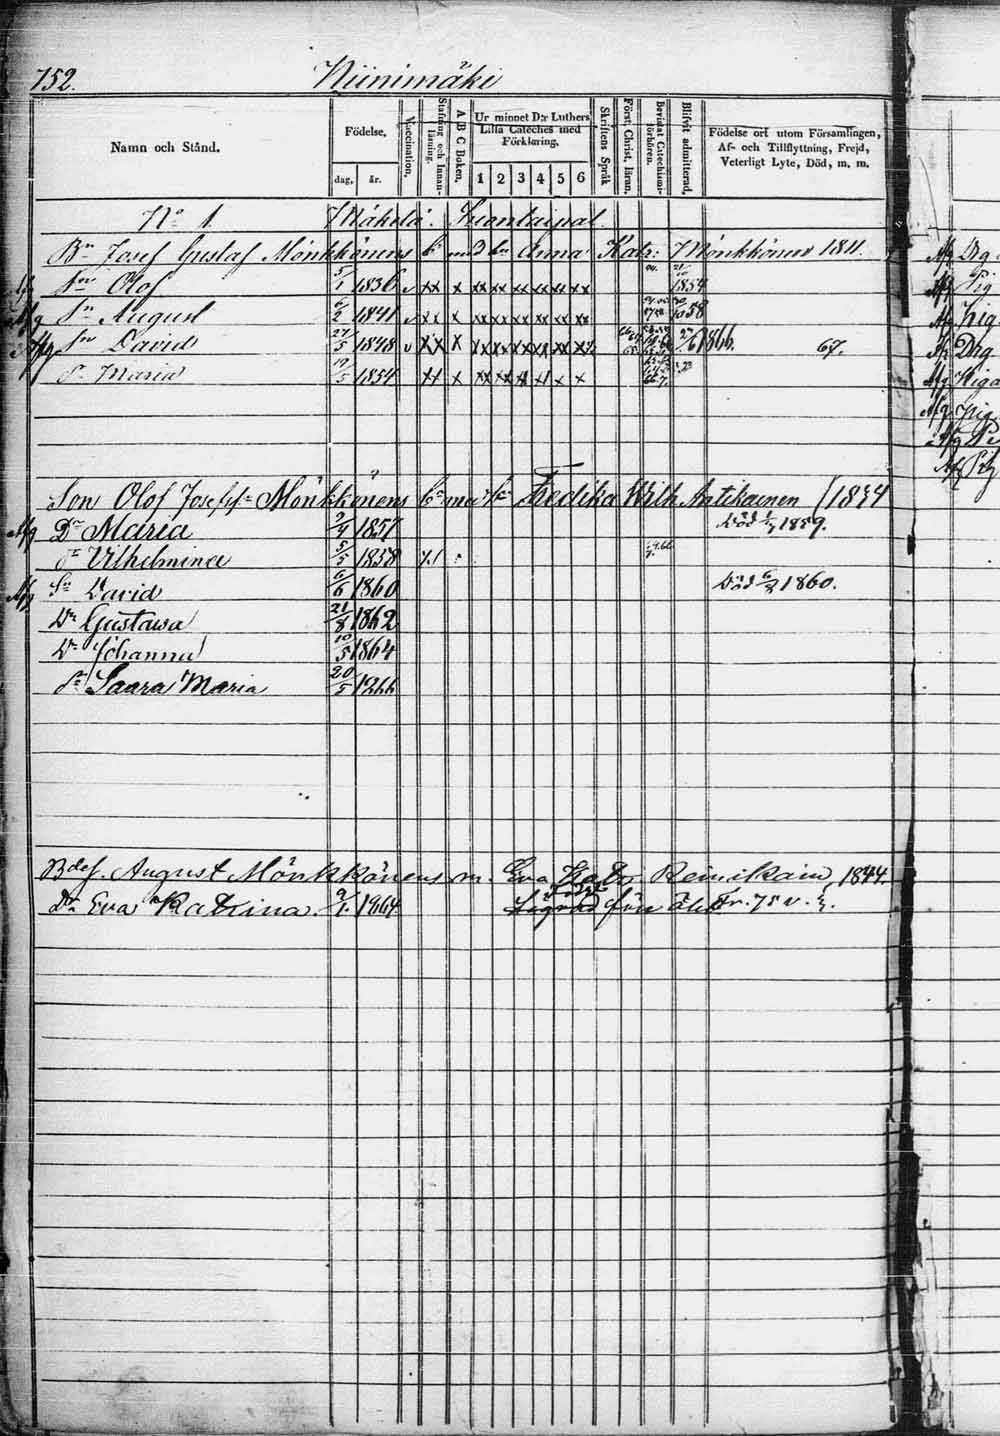 752. Niinimäki
Namn och Stånd.
Födelse,
dag, år.
Vaccination,
Stafning och Innanläsning.
A B C Boken.
Ur minnet D:r Luthers
Lilla Cateches med
Förklaring.
1 2 3 4 5 6
Skriftens Språk
Först. Christ. läran.
Bevistat Catechismiförhören.
Blifvit admitterad.
Födelse ort utom Församlingen,
Af- och Tillflyttning, Frejd,
Veterligt Lyte, Död, m. m.
No 1 Mäkelä. Suontaipal
Bn Josef Gustaf Mönkkönens b Anna Katr: Mönkkönen 1811.
Sn Olof 5/1 1836 v xx x xx xx xx xx xx xx 1854
Afg Sn August 6/2 1841 v xx x xx xx xx xx xx xx 58
Afg Sn David 27/5 1848 v xx x xx xx xx xx xx xx 1866. 67.
Dr Maria 19/5 1854 xx x xx xx xx xx x x
Son Olof Josefss. Mönkkönens Fredika Wilh Antikainen 1834
Afg Dr Maria 2/4 1857 Död 1859.
Dr Vilhelmina 5/5 1858
Afg Sn David 6/6 1860 Död 6/8 1860.
Dr Gustava 21/8 1862
Dr Johanna 10/5 1864
Dr Saara Maria 20/5 1866
August Mönkkönens m. Eva Katr. Reinikain 1844.
Dr Eva Katrina. 2/1. 1864 för
Afg Drg
Afg Pig
Afg
Afg Drg
Afg
Afg
Afg
Afg